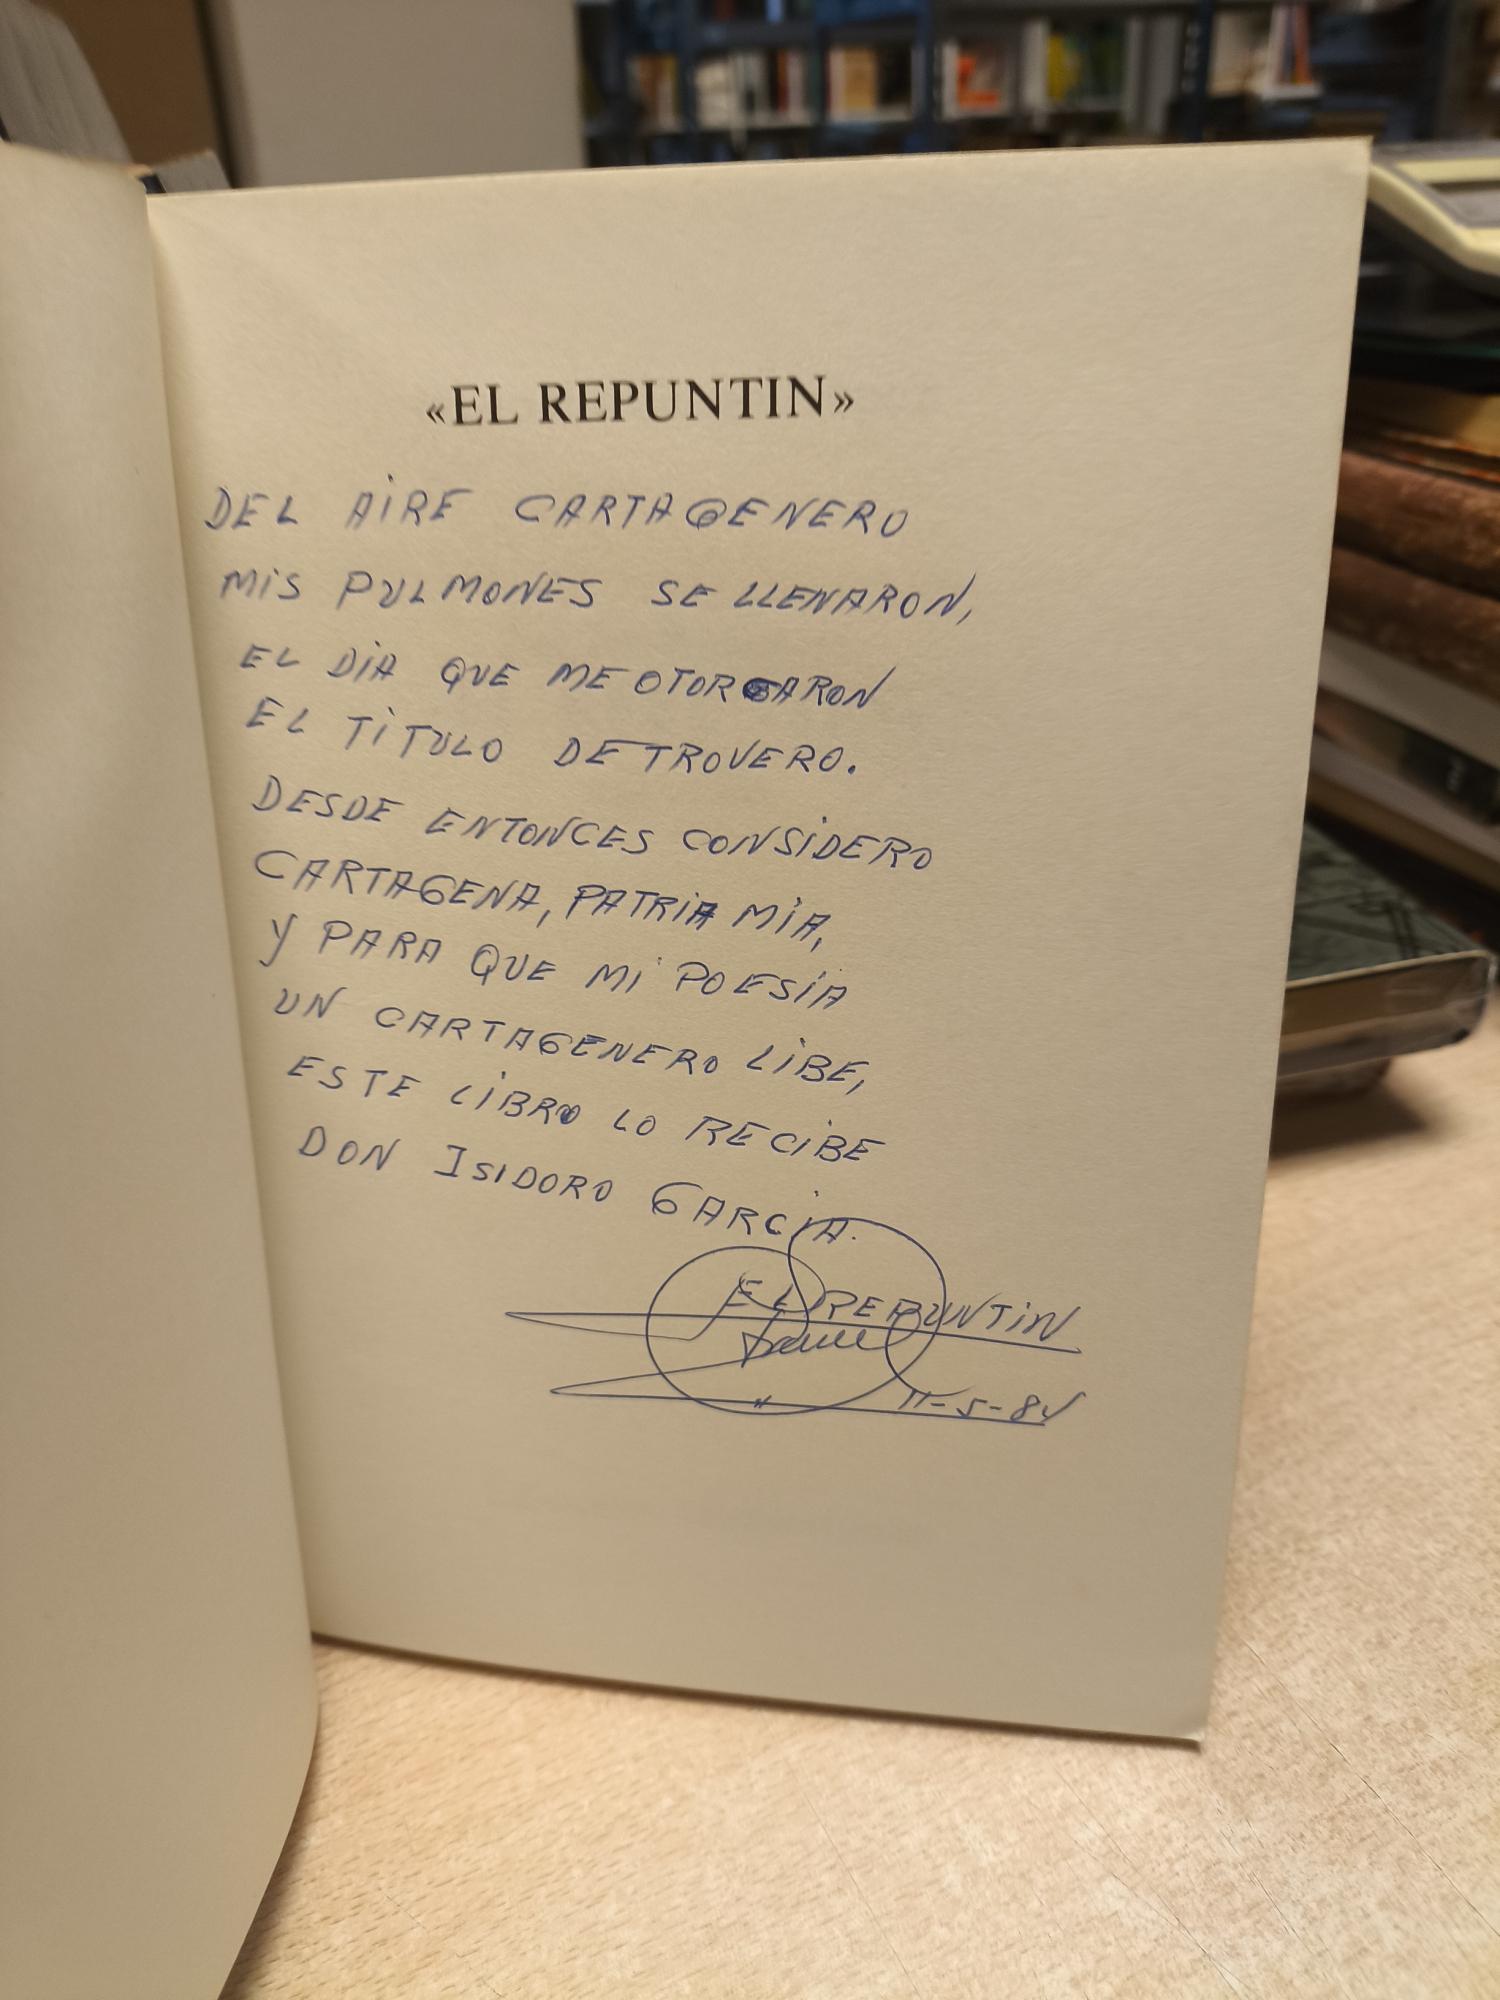 «EL REPUNTIN»
DEL AIRE CARTAGENERO
MIS PULMONES SE LLENARON,
EL DIA QUE ME OTORGARON
EL TITULO DE TROVERO.
DESDE ENTONCES CONSIDERO
CARTAGENA, PATRIA MIA,
Y PARA QUE MI POESIA
UN CARTAGENERO LIBE,
ESTE LIBRO LO RECIBE
DON ISIDORO GARCIA.
EL REPUNTIN
11-5-84